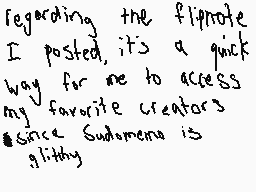 regarding the flipnote
I posted, it's a quick
way for me to access
my favorite creators
since Sudomemo is
glithy